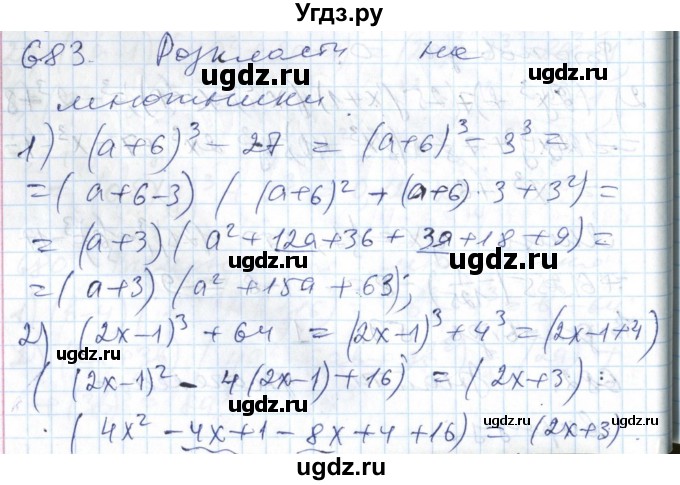 Угдз.ру
683. Розкласти на
множники.
1) (a+6)³ - 27 = (a+6)³ - 3³ =
= (a+6-3) ( (a+6)² + (a+6)·3 + 3²) =
= (a+3) ( a² + 12a+36 + 3a+18 +9) =
= (a+3) (a² + 15a + 63);
2) (2x-1)³ + 64 = (2x-1)³ + 4³ = (2x-1+4)
( (2x-1)² - 4(2x-1)+16) = (2x+3) :
· ( 4x² - 4x+1 - 8x+4 +16) = (2x+3) ·
ugdz.ru
ugdz.ru
ugdz.ru
ugdz.ru
ugdz.ru
ugdz.ru
ugdz.ru
ugdz.ru
ugdz.ru
ugdz.ru
ugdz.ru
ugdz.ru
ugdz.ru